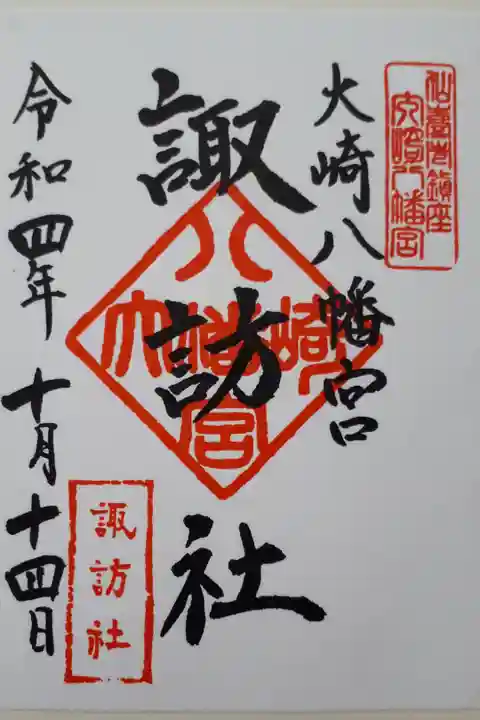 仙臺市鎮座
大崎八幡宮
大崎八幡宮
諏訪社
八幡宮
大崎
諏訪社
令和四年十月十四日